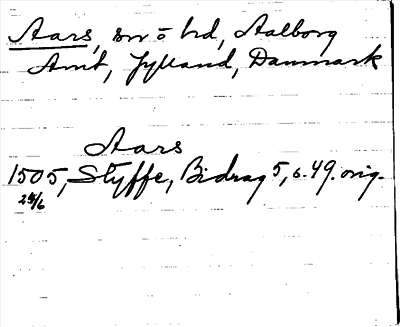 Aars, sn o hd, Aalborg
Amt, Jylland, Danmark
Aars
1505, Styffe, Bidrag 5, s. 49. orig.
24/6